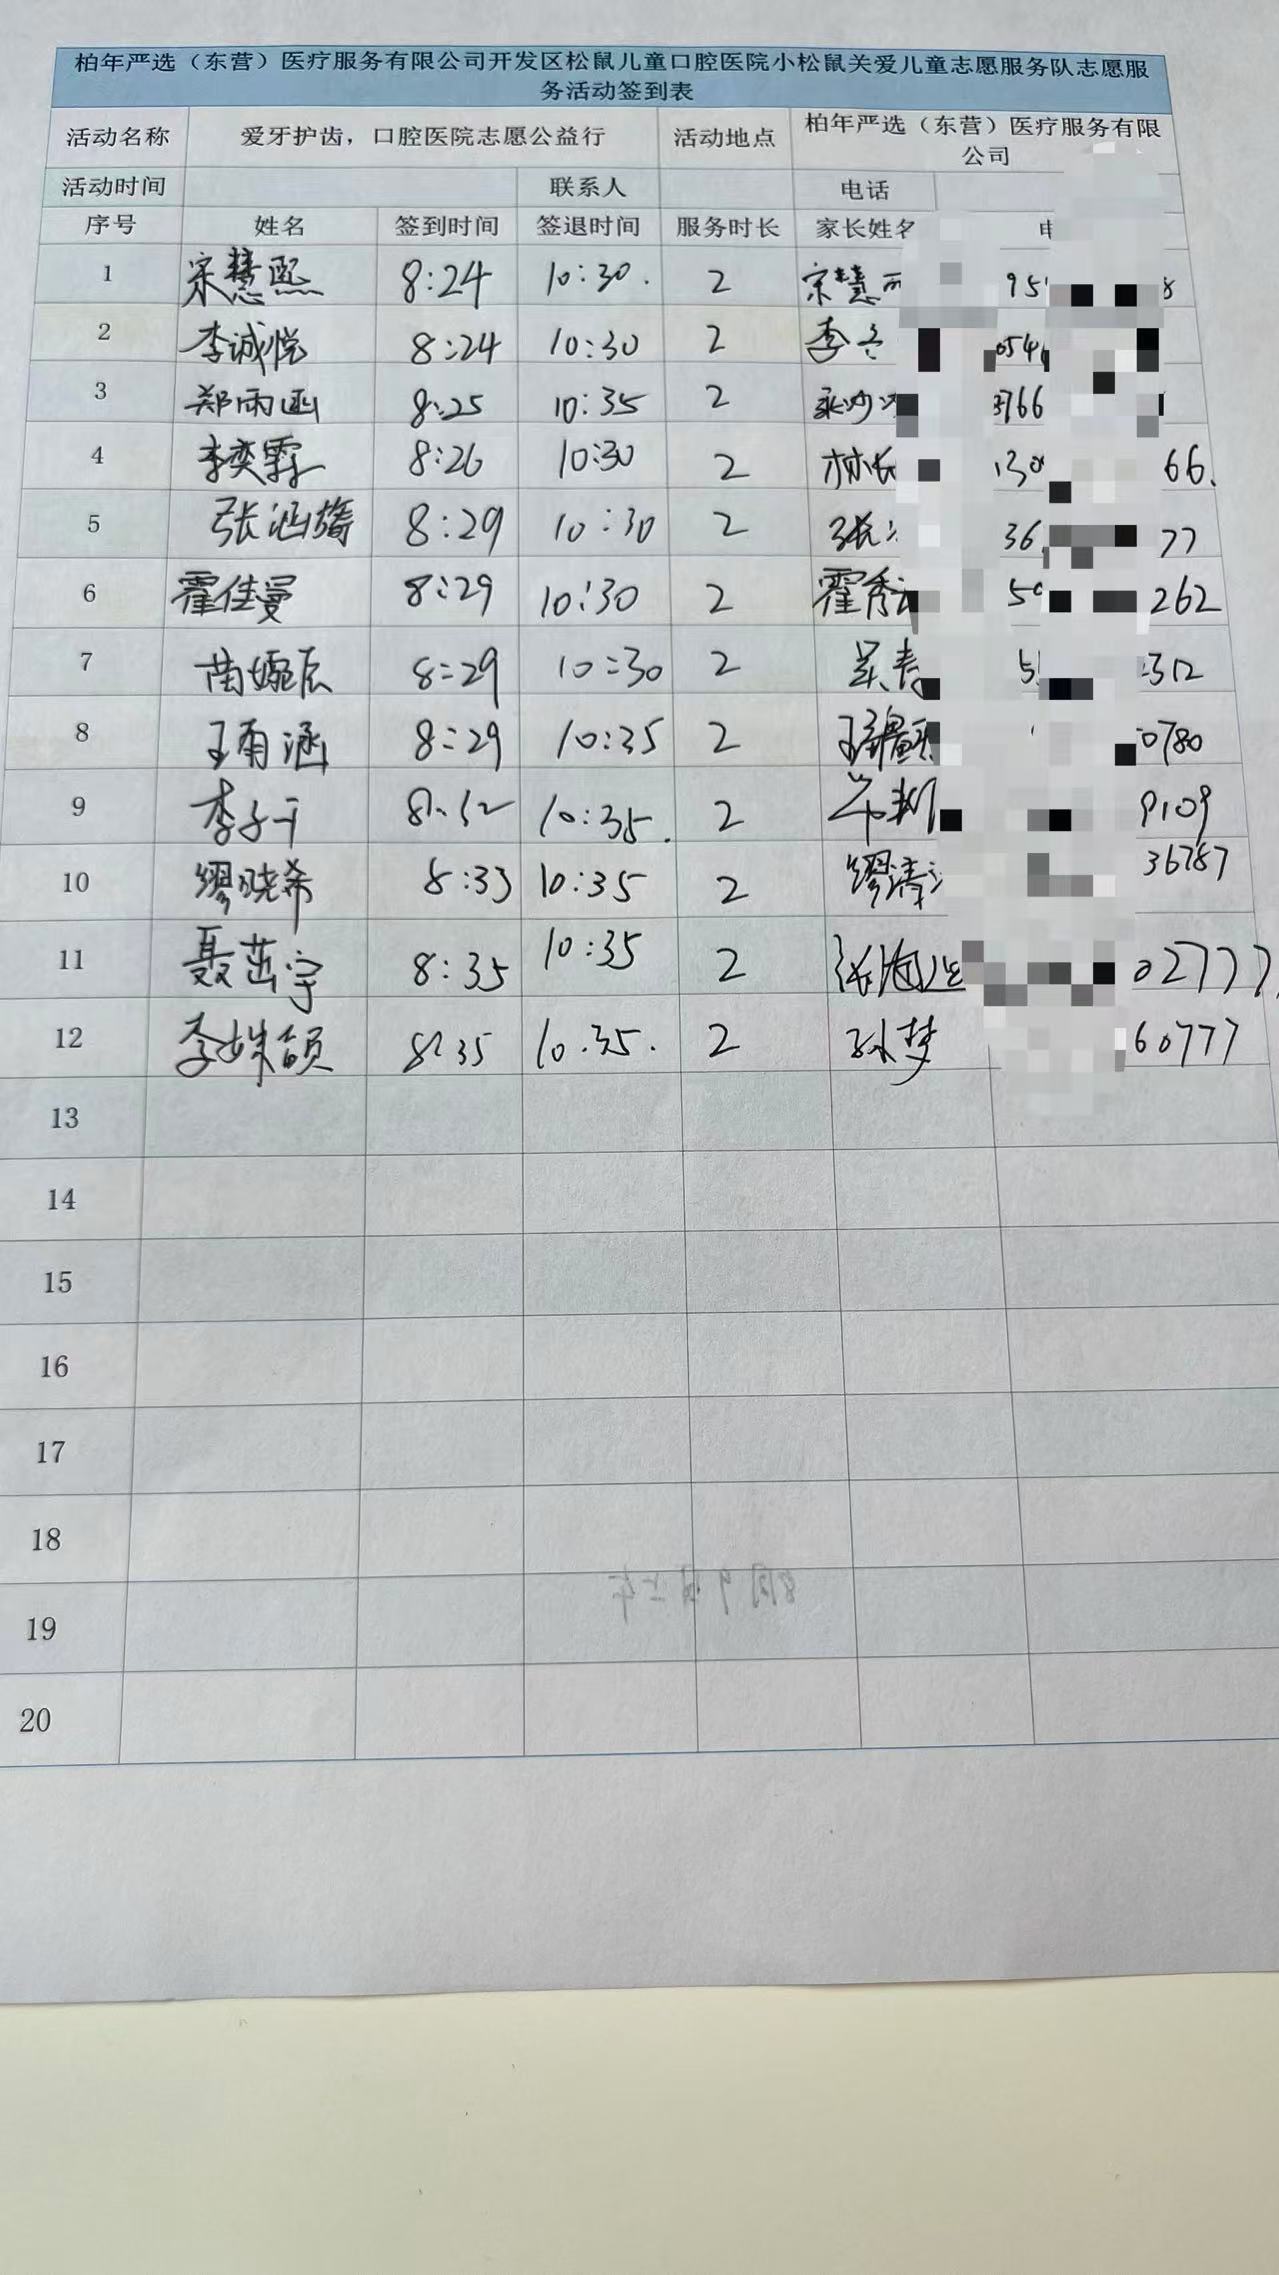 柏年严选（东营）医疗服务有限公司开发区松鼠儿童口腔医院小松鼠关爱儿童志愿服务队志愿服
务活动签到表
活动名称 爱牙护齿，口腔医院志愿公益行 活动地点 柏年严选（东营）医疗服务有限
公司
活动时间 联系人 电话
序号 姓名 签到时间 签退时间 服务时长 家长姓名
1 宋慧熙 8:24 10:30. 2 宋慧 95 8
2 李诚悦 8:24 10:30 2 李 054
3 郑雨函 8:25 10:35 2 3766
4 李奕霏 8:26 10:30 2 林长 130 66.
5 张涵 8:29 10:30 2 张 36 77
6 霍佳曼 8:29 10:30 2 霍秀 50 262
7 苗婉辰 8:29 10:30 2 吴寿 5 312
8 王雨涵 8:29 10:35 2 王 0780
9 李子千 8:32 10:35. 2 9109
10 缪晓希 8:33 10:35 2 缪清 36787
11 聂茁宇 8:35 10:35 2 张海 02777
12 李姝颉 8:35 10.35. 2 孙梦 60777
13
14
15
16
17
18
8月9日上午
19
20